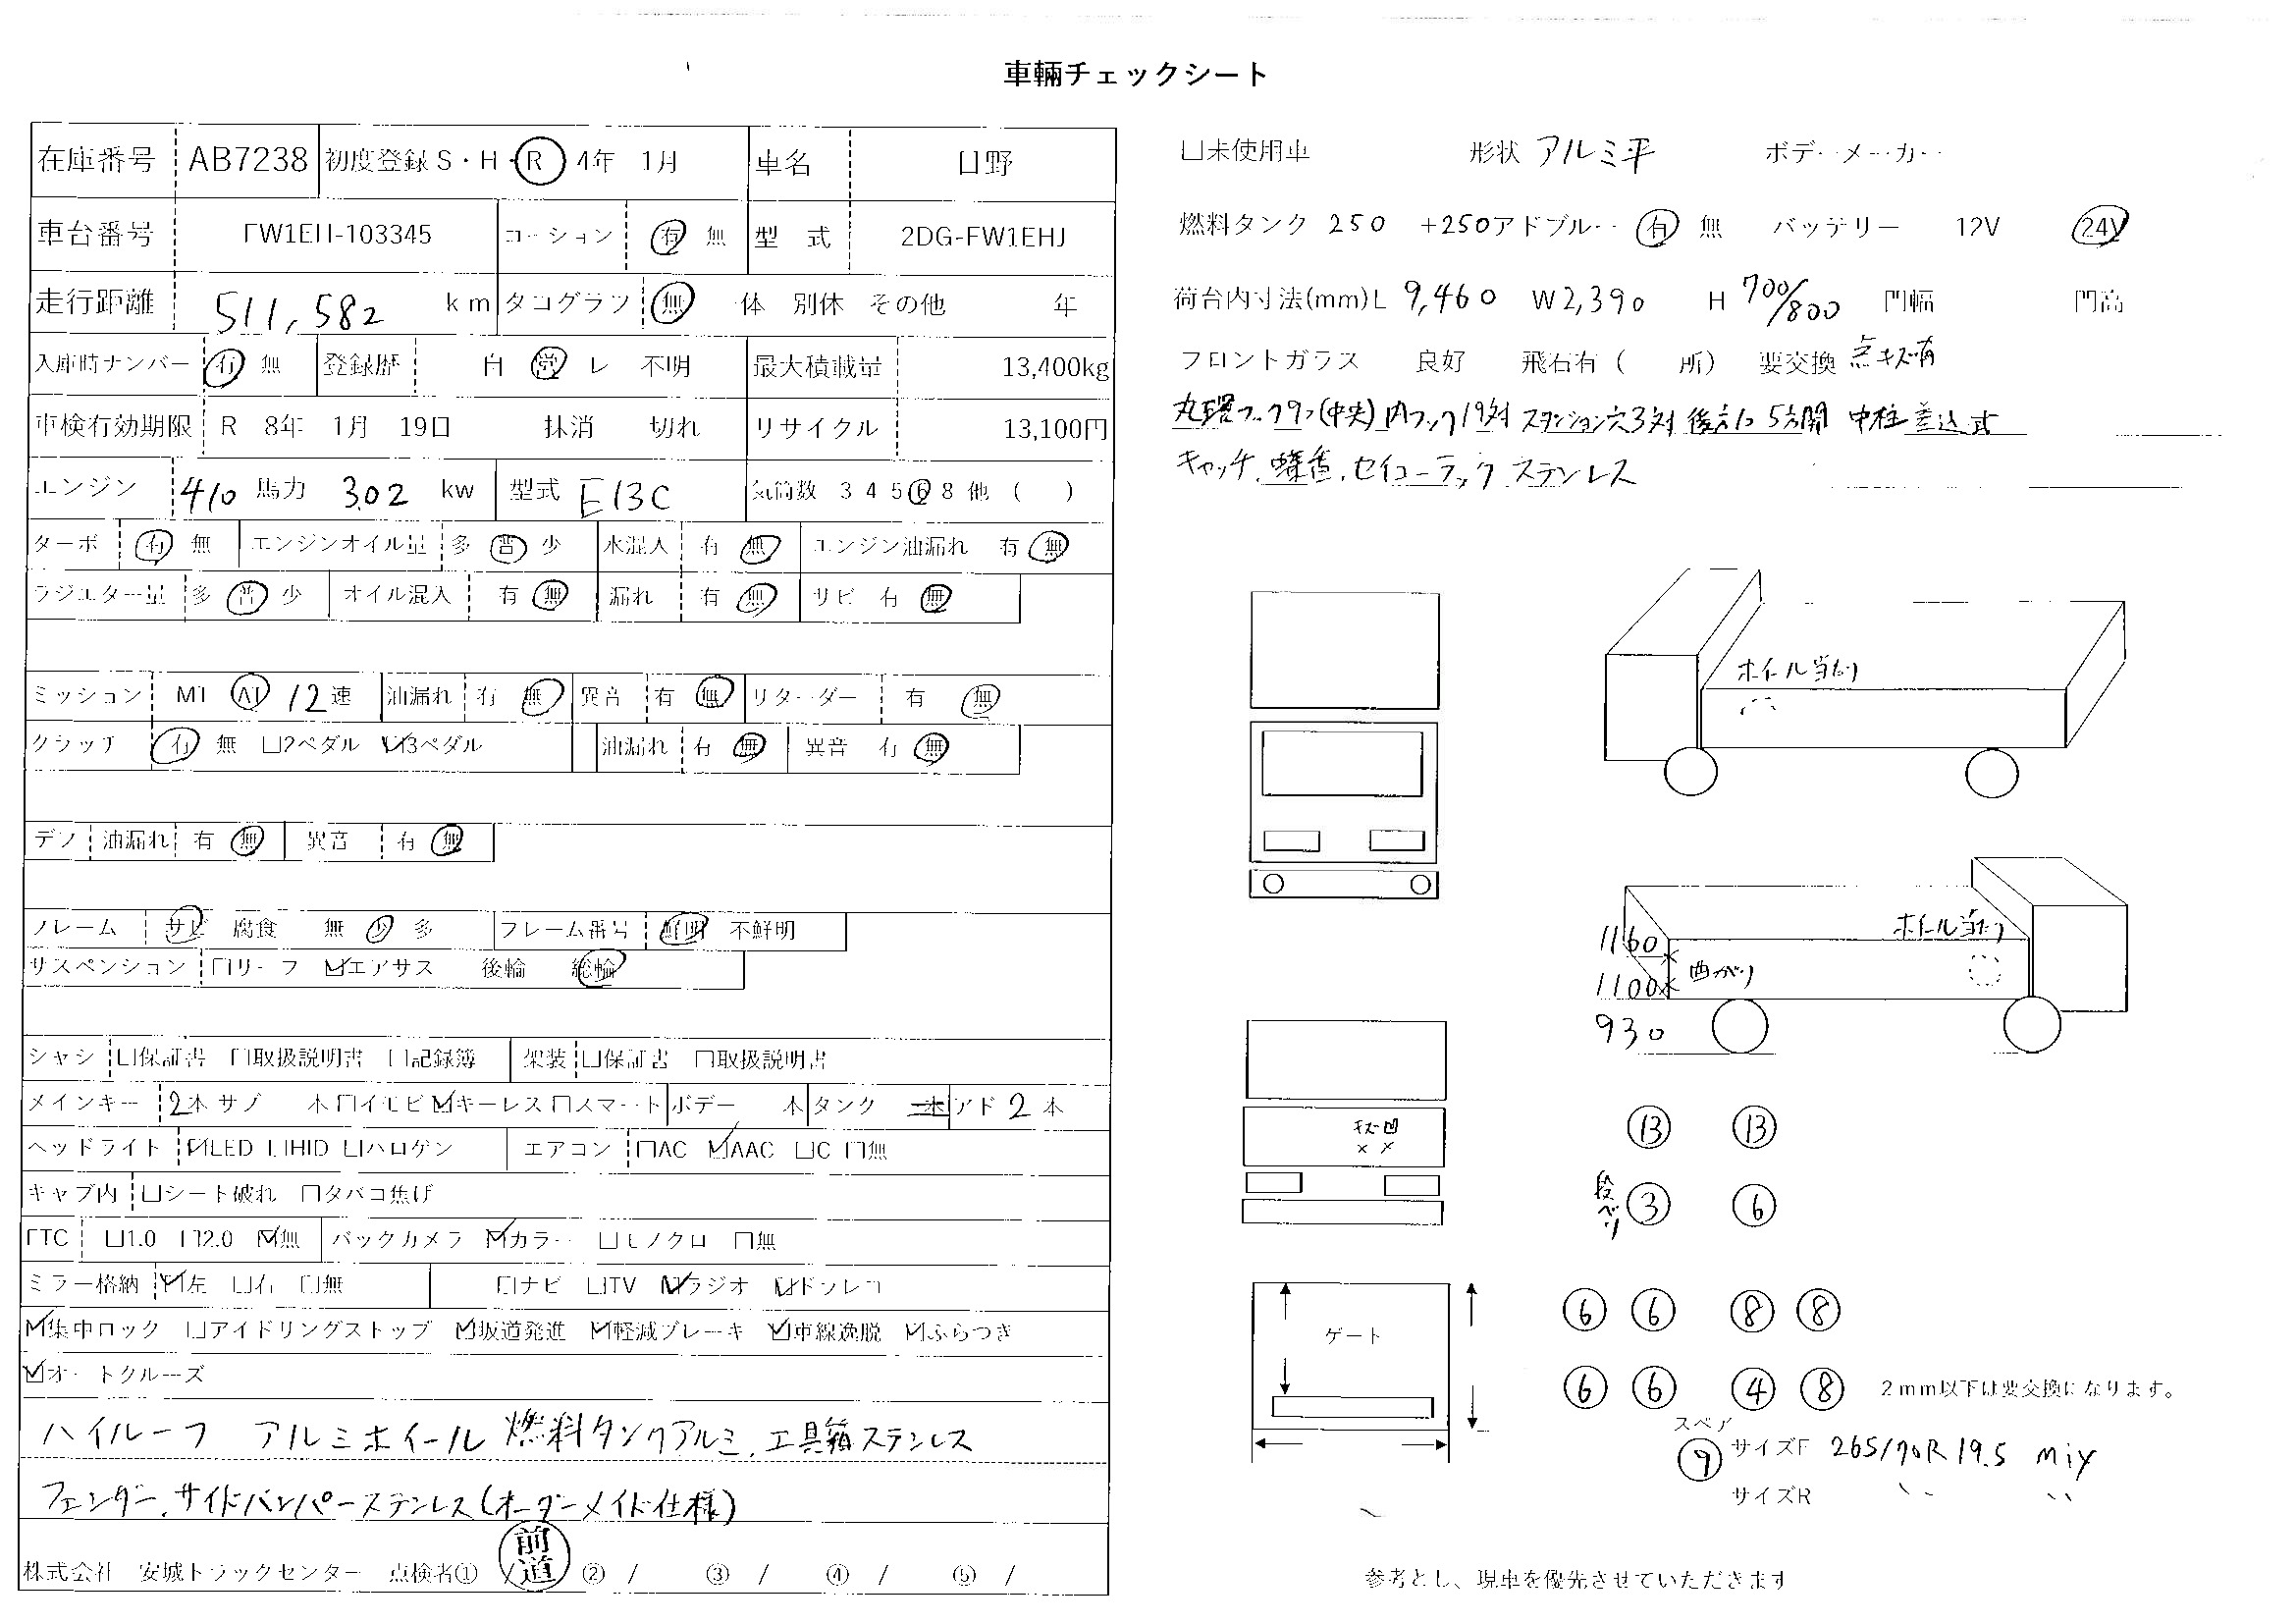 車輛チェックシート
在庫番号 AB7238 初度登録 S・H・R 4年 1月 車名 日野
車台番号 FW1EH-103345 コーション 有 無 型 式 2DG-FW1EHJ
走行距離 511,582 km タコグラフ 無 一体 別体 その他 年
入庫時ナンバー 有 無 登録歴 自 営 レ 不明 最大積載量 13,400kg
車検有効期限 R 8年 1月 19日 抹消 切れ リサイクル 13,100円
エンジン 410 馬力 302 kw 型式 E13C 気筒数 3 4 5 6 8 他 ( )
ターボ 有 無 エンジンオイル量 多 普 少 水混入 有 無 エンジン油漏れ 有 無
ラジエター量 多 普 少 オイル混入 有 無 漏れ 有 無 サビ 有 無
ミッション MT AT 12速 油漏れ 有 無 異音 有 無 リターダー 有 無
クラッチ 有 無 □2ペダル ☑3ペダル 油漏れ 有 無 異音 有 無
デフ 油漏れ 有 無 異音 有 無
フレーム サビ 腐食 無 少 多 フレーム番号 鮮明 不鮮明
サスペンション □リーフ ☑エアサス 後輪 総輪
シャシ □保証書 □取扱説明書 □記録簿 架装 □保証書 □取扱説明書
メインキー 2本 サブ 本 □イモビ ☑キーレス □スマート ボデー 本 タンク 本 アド 2本
ヘッドライト ☑LED □HID □ハロゲン エアコン □AC ☑AAC □C □無
キャブ内 □シート破れ □タバコ焦げ
ETC □1.0 □2.0 ☑無 バックカメラ ☑カラー □モノクロ □無
ミラー格納 ☑左 □右 □無 □ナビ □TV ☑ラジオ ☑ドラレコ
☑集中ロック □アイドリングストップ ☑坂道発進 ☑軽減ブレーキ ☑車線逸脱 ☑ふらつき
☑オートクルーズ
ハイルーフ アルミホイール 燃料タンクアルミ、工具箱ステンレス
フェンダー、サイドバンパーステンレス(オーダーメイド仕様)
株式会社 安城トラックセンター 点検者① / 前道 ② / ③ / ④ / ⑤ /
□未使用車 形状 アルミ平 ボデーメーカー
燃料タンク 250 +250 アドブルー 有 無 バッテリー 12V 24V
荷台内寸法(mm) L 9,460 W 2,390 H 700/800 門幅 門高
フロントガラス 良好 飛石有 ( 所) 要交換 点キズ有
丸環フック9ヶ(中央) 内フック19対 スタンション穴3対 後方に 5方開 中柱差込式
キャッチ、蝶番、セイコーラック ステンレス
ホイル当たり
ホイル当たり
1160
曲がり
1100
930
キズ凹
⑬ ⑬
段べり ③ ⑥
⑥ ⑥ ⑧ ⑧
ゲート
⑥ ⑥ ④ ⑧ 2mm以下は要交換になります。
スペア
⑨ サイズF 265/70R19.5 mix
サイズR 〃 〃
参考とし、現車を優先させていただきます